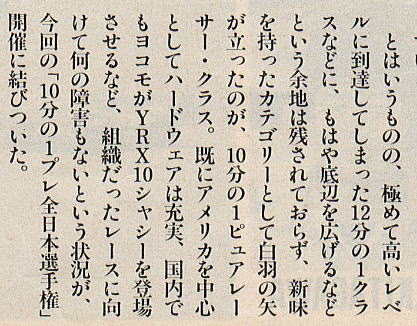 とはいうものの、極めて高いレベ
ルに到達してしまった12分の1クラ
スなどに、もはや底辺を広げるなど
という余地は残されておらず、新味
を持ったカテゴリーとして白羽の矢
が立ったのが、10分の1ピュアレー
サー・クラス。既にアメリカを中心
としてハードウェアは充実、国内で
もヨコモがYRX10シャシーを登場
させるなど、組織だったレースに向
けて何の障害もないという状況が、
今回の「10分の1プレ全日本選手権」
開催に結びついた。